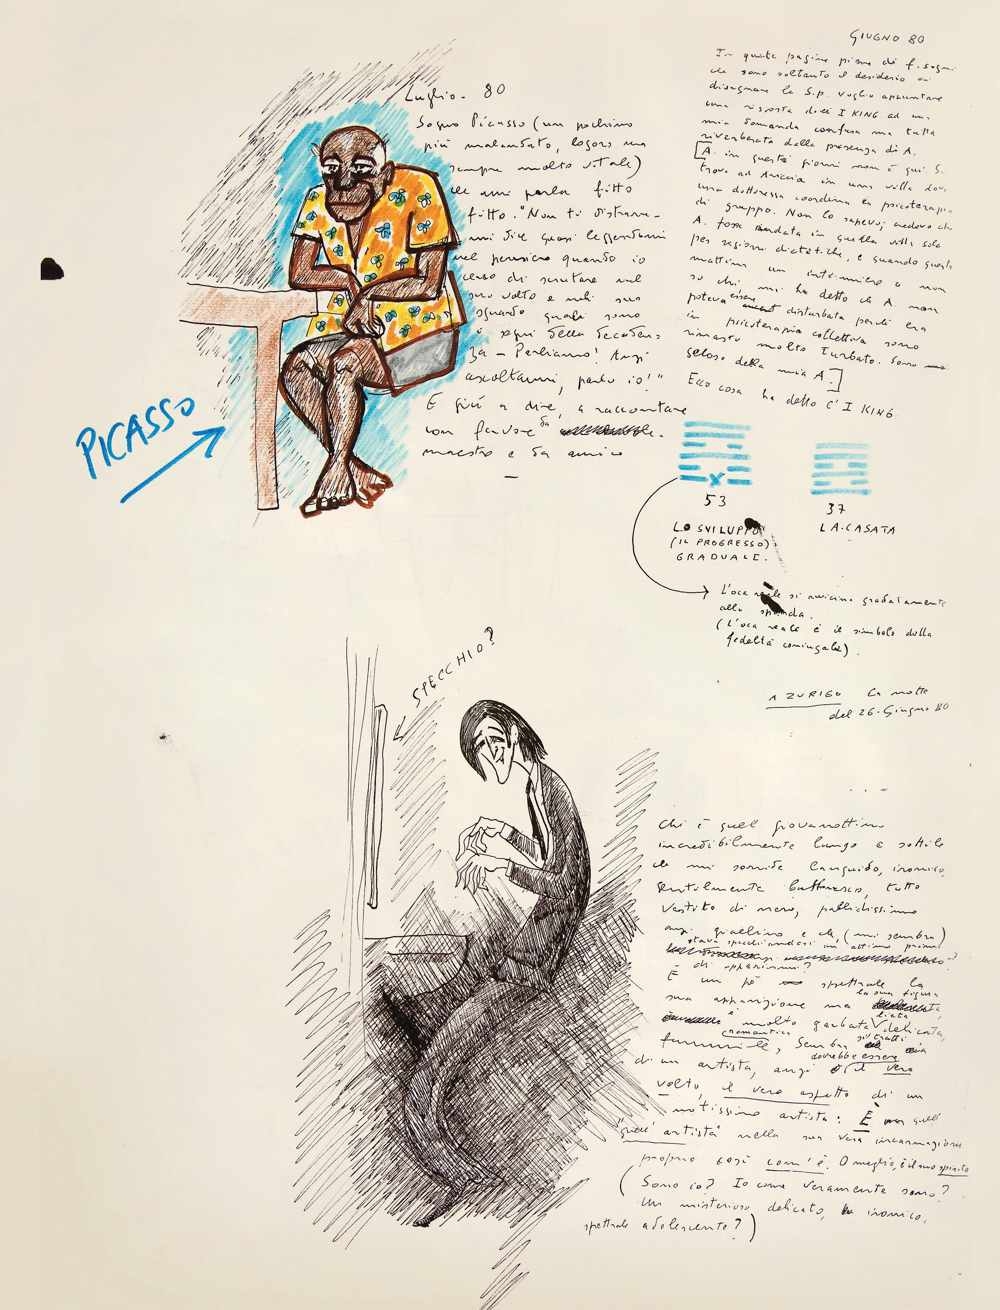 GIUGNO 80
In queste pagine piene di f. sogni
che sono soltanto il desiderio di
disegnare la S.p. voglio appuntare
una risposta dell' I KING ad una
mia domanda confusa ma tutta
riverberata dalla presenza di A.
[A. in questi giorni non è qui. Si
trova ad Ariccia in una villa dove
una dottoressa coordina la psicoterapia
di gruppo. Non lo sapevo; credevo che
A. fosse andata in quella villa solo
per ragioni dietetiche, e quando questa
mattina un intimico o non
so chi mi ha detto che A non
poteva essere disturbata perché era
in psicoterapia collettiva sono
rimasto molto turbato. Sono
geloso della mia A.]
Ecco cosa ha detto l' I KING
53
LO SVILUPPO
(IL PROGRESSO)
GRADUALE.
37
LA CASATA
L'oca reale si avvicina gradatamente
alla sponda.
(L'oca reale è il simbolo della
fedeltà coniugale).
A ZURIGO la notte
del 26. Giugno 80
Luglio - 80
Sogno Picasso (un pochino
più malandato, logoro ma
sempre molto vitale)
che mi parla fitto
fitto. "Non ti distrarre
mi dice quasi leggendomi
nel pensiero quando io
cerco di scrutare nel
suo volto e nel suo
sguardo quali sono
i segni della decaden-
za - Parliamo! Anzi
ascoltami, parlo io!"
E giù a dire, a raccontare
con fervore da
maestro e da amico
PICASSO
SPECCHIO?
Chi è quel giovanottino
incredibilmente lungo e sottile
che mi sorride languido, ironico,
sottilmente buffonesco, tutto
vestito di nero, pallidissimo
anzi giallino e che (mi sembra)
stava specchiandosi un attimo prima
di apparirmi?
È un po' spettrale la
sua apparizione ma la sua figura
è molto garbata, delicata,
romantica
femminile, sembra si tratti
di un artista, anzi dovrebbe essere il vero
volto, il vero aspetto di un
notissimo artista: È quell'
"quell'artista" nella sua vera incarnazione
proprio così com'è. O meglio, è il suo spirito
(Sono io? Io come veramente sono?
Un misterioso, delicato, ironico,
spettrale adolescente?)